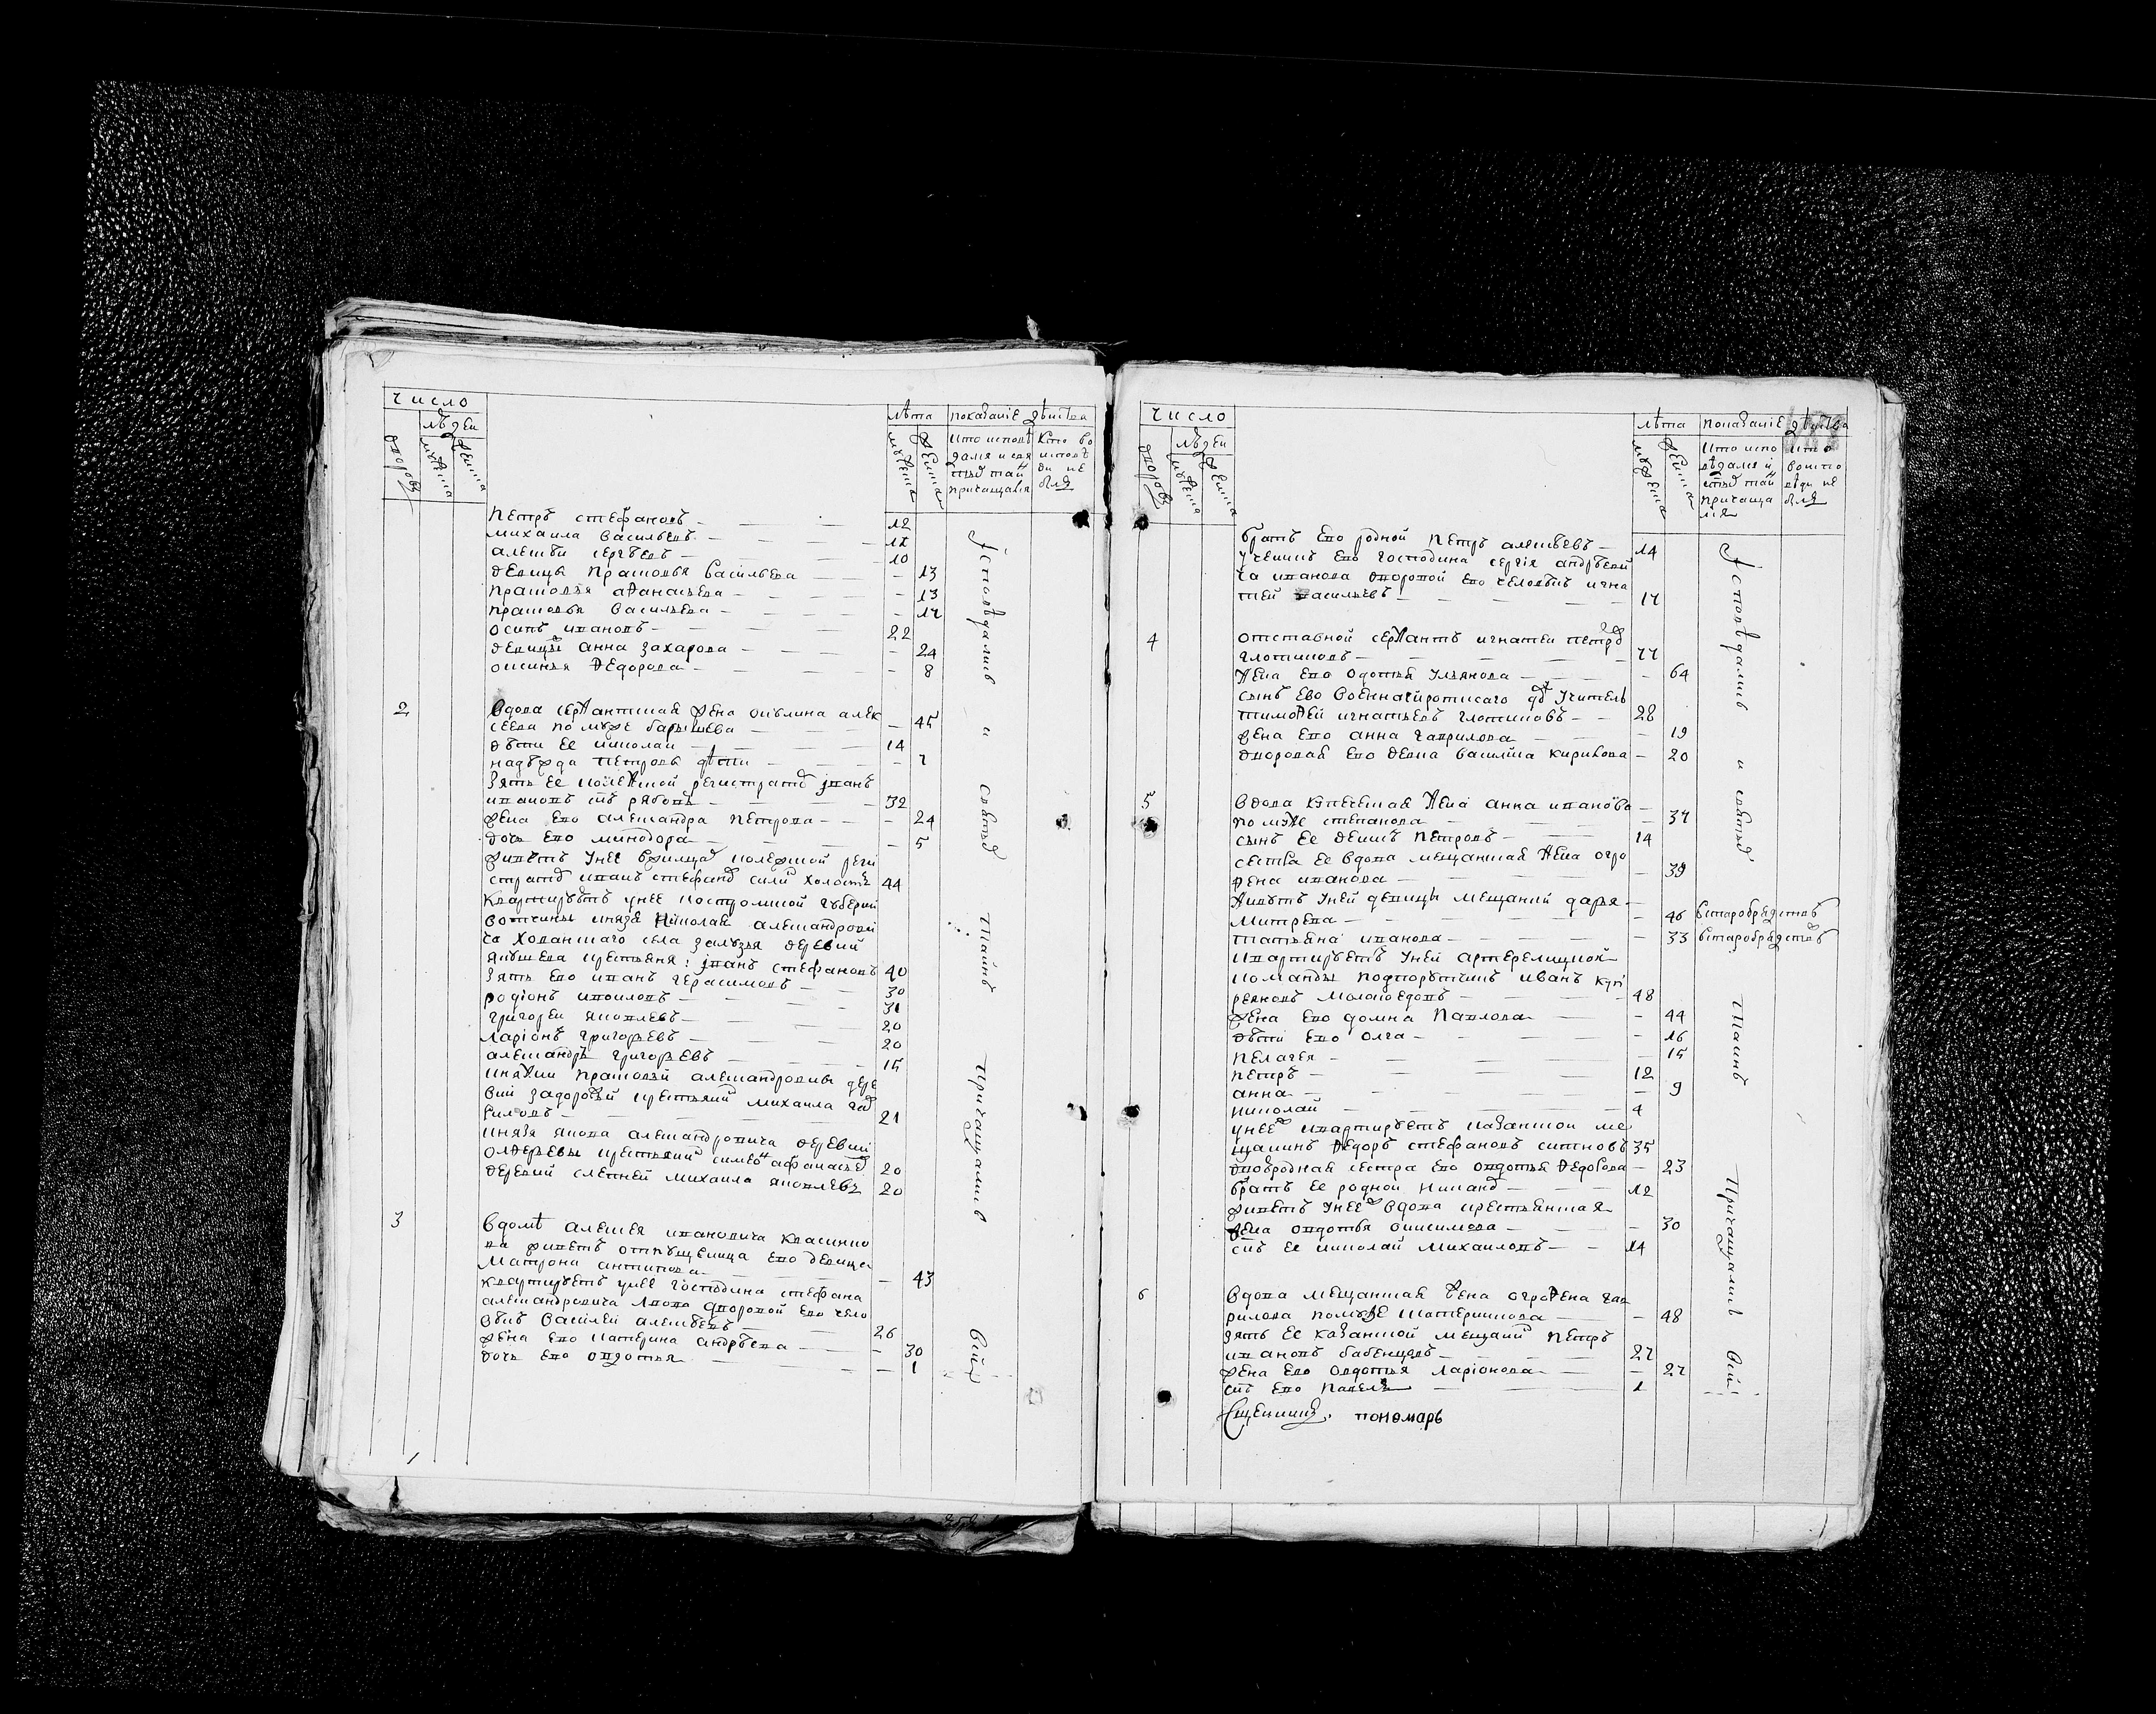 число
людеи
дворовъ
мужеска
женска
лѣта
мужеска
женска
показаніе дѣиства
кто исповѣ
дался и свя
тыхъ таинъ
причащался
кто во
исповѣ
ди не
былъ
петръ стефановъ — 12
михаила васильевъ — 12
алексѣи сергѣевъ — 10
девицы прасковья васильева — 13
прасковья афанасьева — 13
прасковья васильева — 17
осипъ ивановъ — 22
девицы анна захарова — 24
оксинья федорова — 8
2 вдова сержантская жена окулина алек
сеева по мужѣ барышева — 45
дѣти ее николаи — 14
надѣжда петровы дѣти — 7
зять ее колежской регистраторъ іванъ
ивановъ рябовъ — 32
жена ево александра петрова — 24
дочь ево минодора — 5
живетъ унеѣ колежской реги
страторъ иванъ стефановъ холостъ 44
квартируетъ унее костромской губерніи
вотчины князя николая александрови
ча хованскаго села залузья деревни
якушева крестьяня: іванъ стефановъ 40
зять ево иванъ герасимовъ — 30
родіонъ ивоиловъ — 31
григореи яковлевъ — 20
ларіонъ григорьевъ — 20
александръ григорьевъ — 15
княжни прасковьи александровны дере
вни задорожьи крестьянинъ михаила гав
риловъ — 21
князя якова александровича деревни
олферьевы крестьянинъ симеонъ афанасьевъ 20
деревни слепней михаила яковлевъ 20
3 вдомѣ алексѣя ивановича квасников
ва живетъ отпущеница ево девица
матрона антипова — 43
квартируетъ унее господина стефана
александровича лвова дворовой ево чело
вѣкъ василеи алексѣевъ — 26
жена ево катерина андрѣева — 30
дочь ево овдотья — 1
Исповѣдались и святыхъ таинъ причащались всѣ
число
людеи
дворовъ
мужеска
женска
лѣта
мужеска
женска
показаніе дѣиства
кто испо
вѣдался и
святыхъ таи
причаща
лся
кто
воиспо
вѣди не
былъ
братъ ево родной петръ алексѣевъ — 14
ученикъ ево господина сергія андрѣеви
ча иванова дворовой ево человѣкъ игна
теи васильевъ — 17
4 отставной сержантъ игнатеи петровъ
глотиковъ — 77
жена ево одотья ульянова — 64
сынъ ево военнасиротскаго отд учитель
тимофеи игнатьевъ глотиковъ — 28
жена ево анна гаврилова — 19
дворовая ево девка василиса кирилова — 20
5 вдова купеческая жена анна иванова —
по мужѣ степанова — 37
сынъ ее денисъ петровъ — 14
сестра ее вдова мещанская жена огро
фена иванова — 39
живутъ унеи девицы мещанки дарья —
митрева — 46 встарообрядствѣ
татьяна иванова — 33 встарообрядствѣ
квартируетъ унеи артелерискои
команды подпорутчикъ иванъ купі
реяновъ молокоедовъ — 48
жена ево домна павлова — 44
дѣти ево олга — 16
пелагея — 15
петръ — 12
анна — 9
николай — 4
унеежъ квартируетъ казанскои ме
щанинъ федоръ стефановъ ситновъ 35
двоюродная сестра ево овдотья федорова — 23
братъ ее родной никандръ — 12
живетъ унеежъ вдова крестьянская
жена овдотья онисимова — 30
сынъ ее николаи михаиловъ — 14
6 вдова мещанская жена огрофена гав
рилова помужѣ шатерникова — 48
зять ее казанской мещанинъ петръ
ивановъ бабенцовъ — 27
жена ево овдотья ларіонова — 27
сынъ ево павелъ — 1
Священникъ. пономарь
Исповѣдались и святыхъ таинъ причащались всѣ